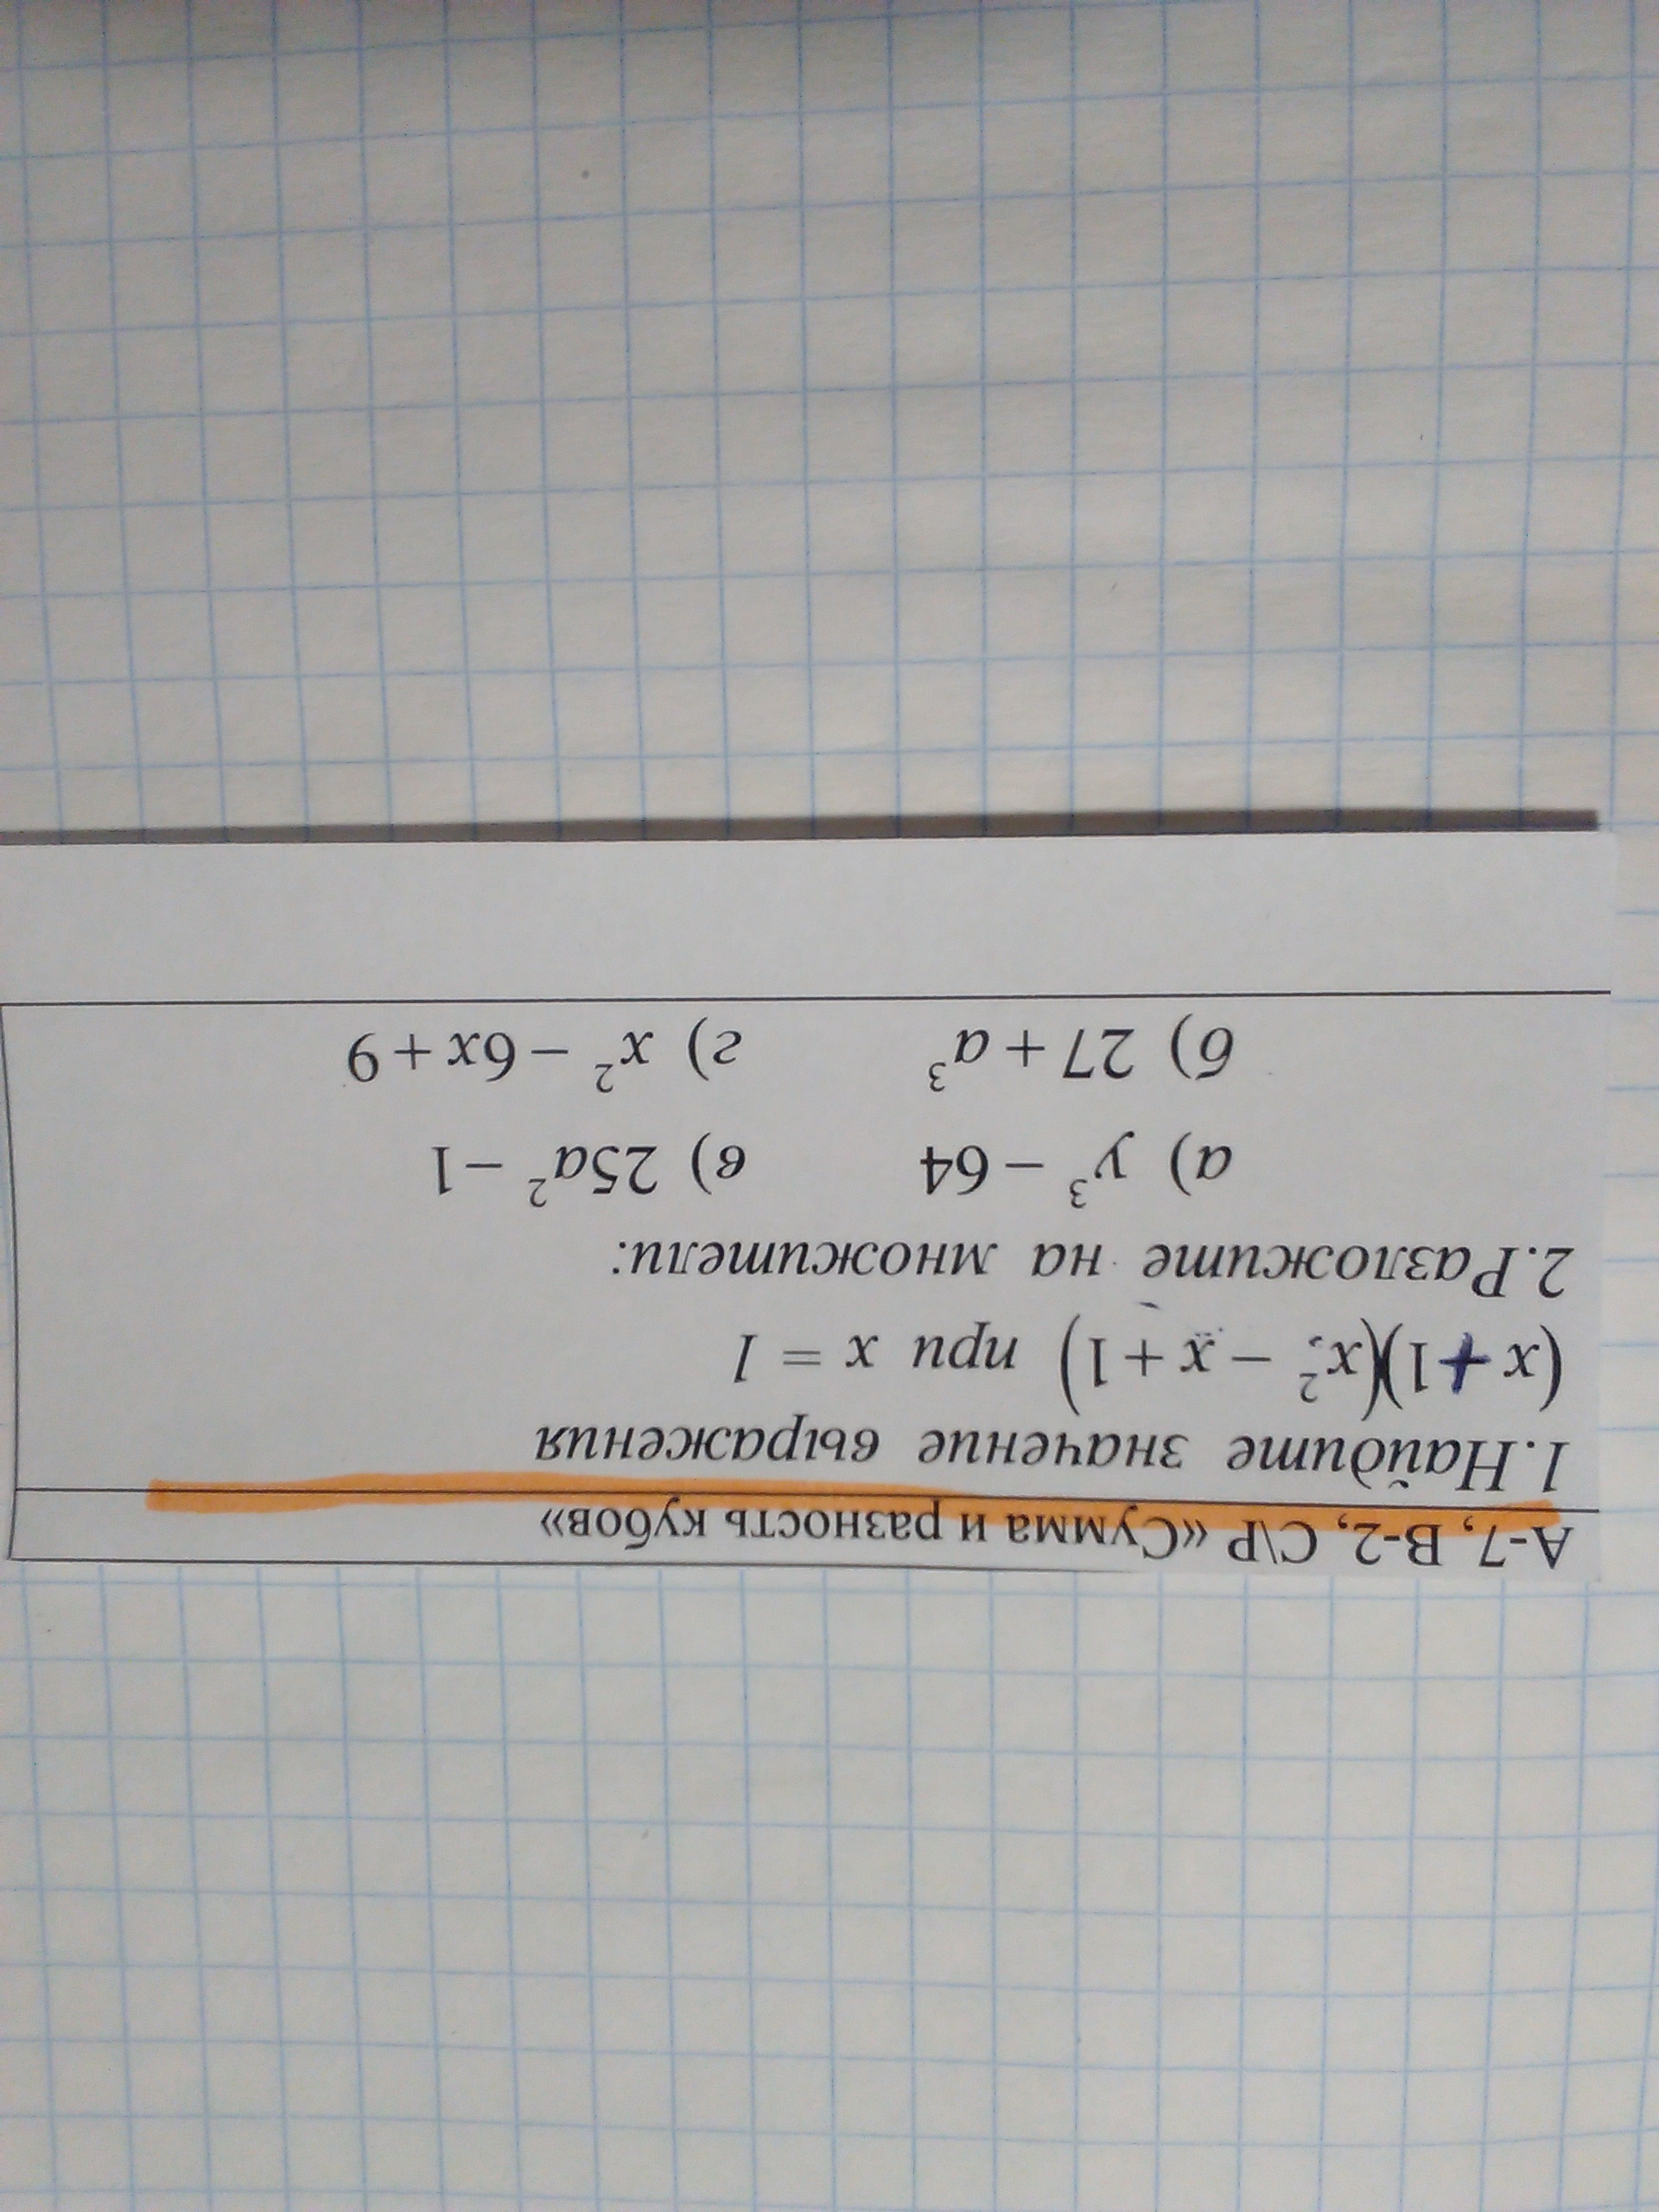 А-7, В-2, С\Р «Сумма и разность кубов»
1.Найдите значение выражения
(x+1)(x² − x+1) при x = 1
2.Разложите на множители:
а) y³ − 64 в) 25a² −1
б) 27+a³ г) x² −6x+9